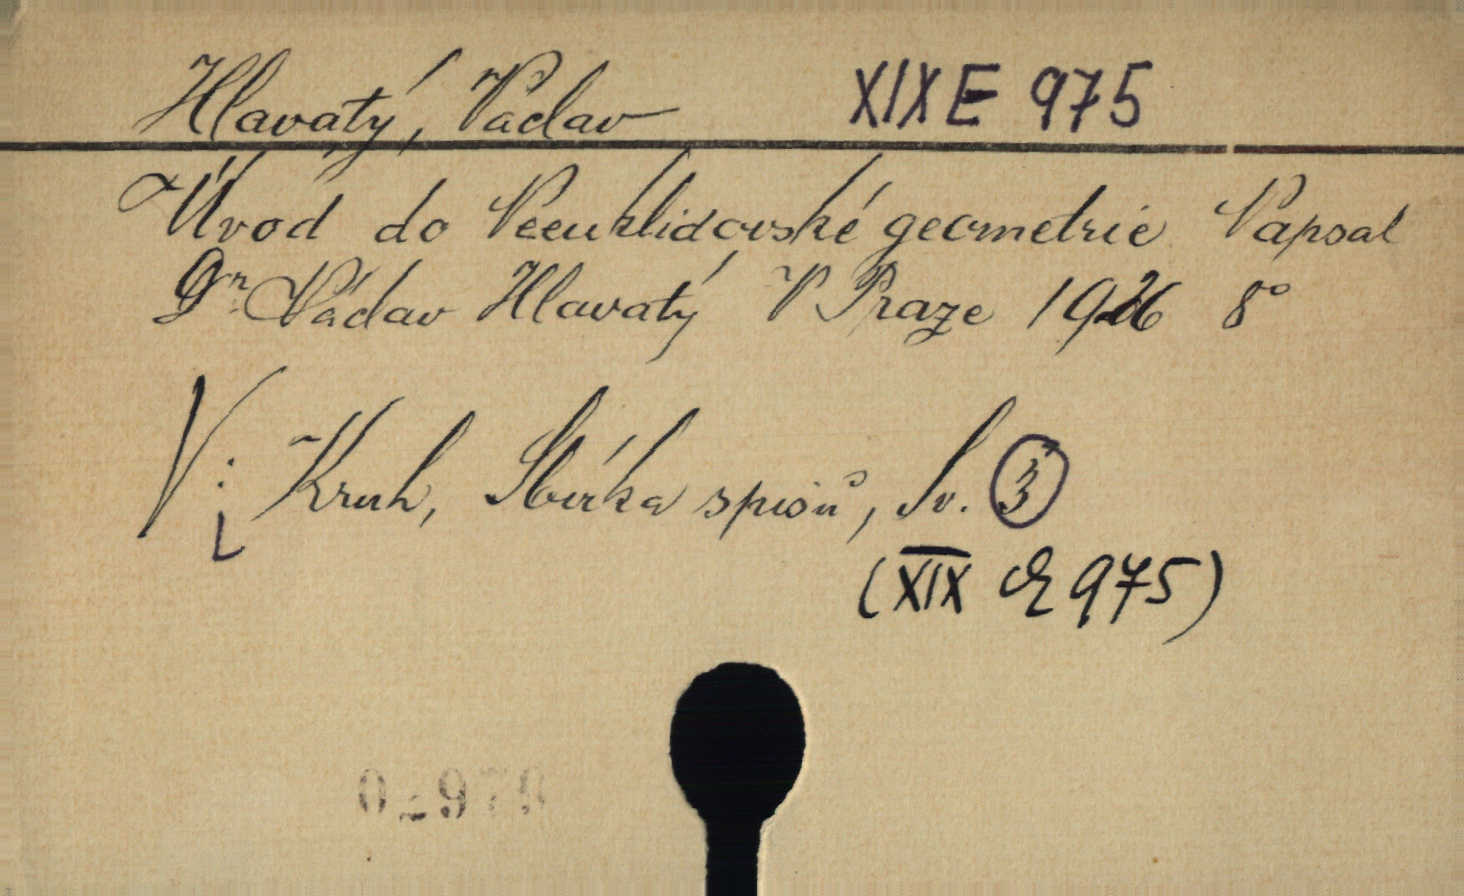 Hlavatý, Václav XIX E 975
Úvod do Neeuklidovské geometrie Napsal
Dr. Václav Hlavatý V Praze 1926 8°
V: Kruh, Sbírka spisů, Sv. 3
(XIX E 975)